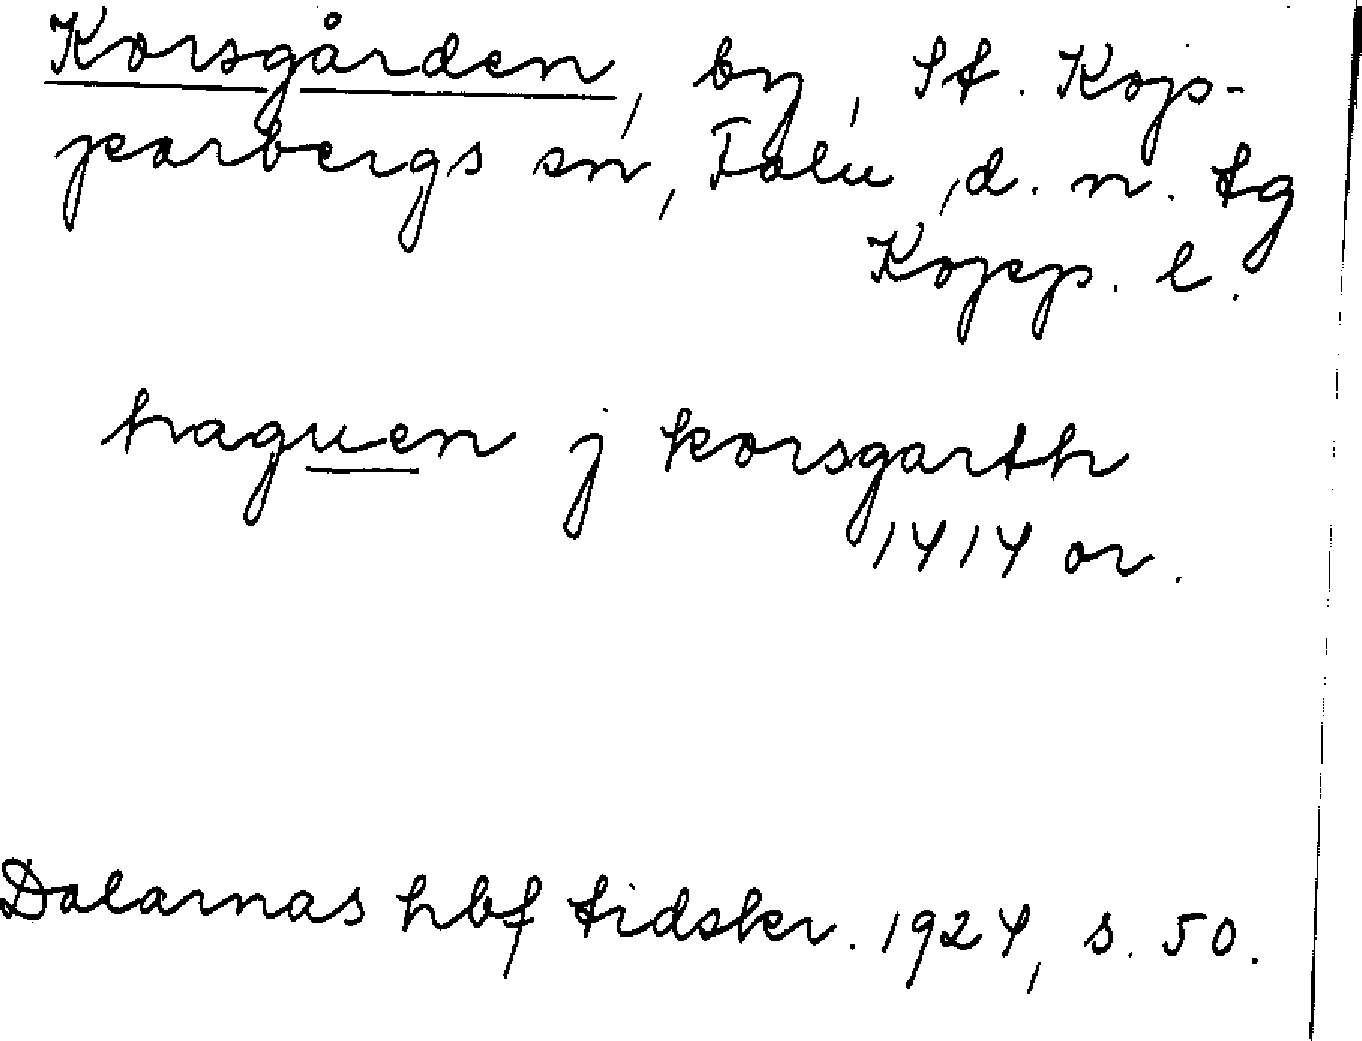 Korsgården, by, St. Kop-
parbergs sn, Falu d. n. tg
Kopp. l.
haguen j korsgarth
1414 or.
Dalarnas hbf tidskr. 1924, s. 50.